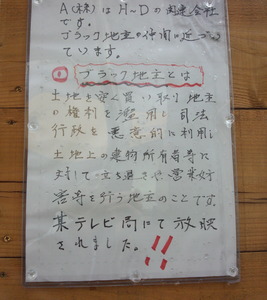 A(株)はH~Dの関連会社
です。
ブラック地主の仲間に近づい
ています。
ブラック地主とは
土地を安く買い取り地主
の権利を濫用し司法
行政を悪意的に利用し
土地上の建物所有者等に
対して立ち退きや営業妨
害等を行う地主のことです。
某テレビ局にて放映
されました。!!